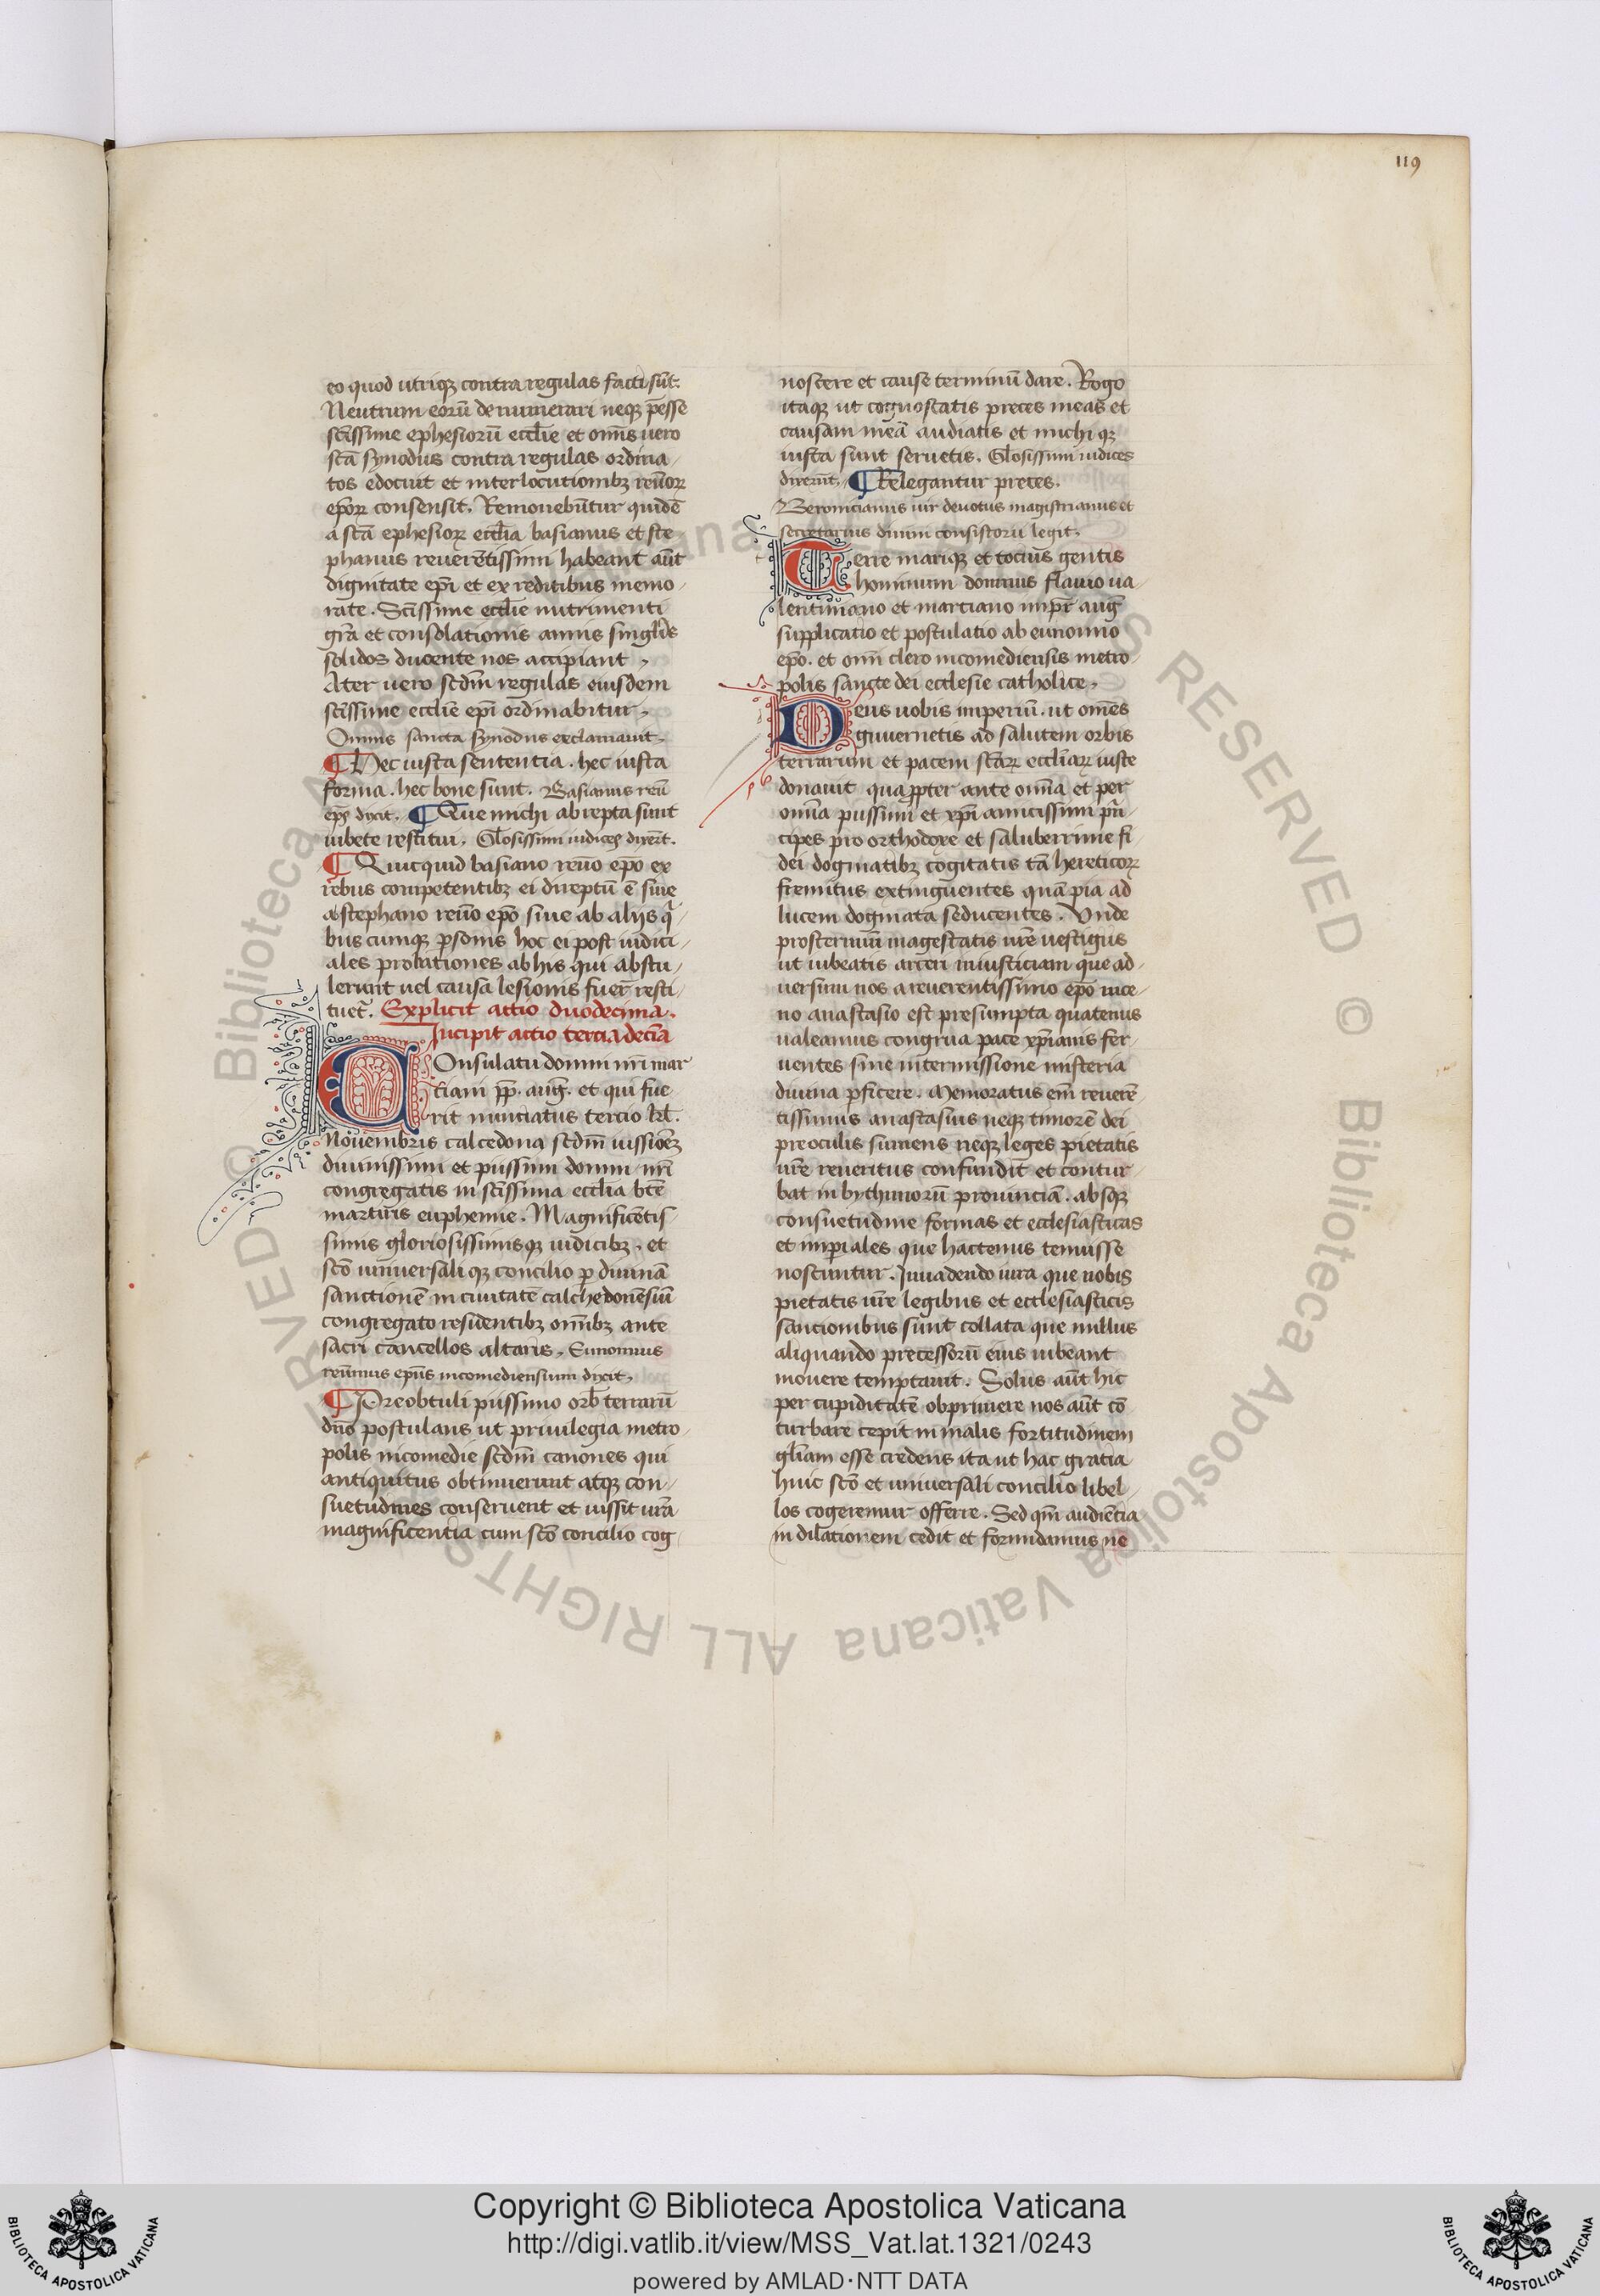 119
eo quod utriqꝫ contra regulas facti sūt.
Neutrum eorū de numerari neqꝫ p̄esse
sc̄issime ephesiorū eccl̄ie et om̄is uero
sc̄a synodus contra regulas ordina
tos edocuit et interlocutionibꝫ reūoꝝ
ep̄oꝝ consensit. Remouebūtur quidē
a sc̄a ephesioꝝ eccl̄ia basianus et ste
phanus reuerētissimi habeant aūt
dignitate ep̄i et ex reditibus memo
rate. Sc̄issime eccl̄ie nutrimenti
gr̄a et consolationis annis singl̄is
solidos ducente nos accipiant
Ater uero scdm̄ regulas eiusdem
sc̄issime eccl̄ie ep̄i ordinabitur.
Omnis sancta synodus exclamauit.
¶ Hec iusta sententia. hec iusta
forma. hec bone sunt. Basianus reū
ep̄s dixit. ¶ Que michi abrepta sunt
iubete restitui. Gl̄osissimi iudices dixer̄t.
¶ Quicquid basiano reūo ep̄o ex
rebus competentibꝫ ei direptū ē siue
a stephano reūo ep̄o siue ab alijs q̄
bus cumqꝫ p̄sonis hoc ei post iudici
ales probationes ab his qui abstu
lerunt uel causa lesionis fuer̄t resti
tuet᷑. Explicit actio duodecima.
Incipit actio tercia decīa
Consulatu domni nr̄i mar
ciani pp̄. auḡ. et qui fue
rit nunciatus tercio kl̄.
Nouembris calcedona scdm̄ iussionꝫ
diuinissimi et piissimi domni nr̄i
congregatis in sc̄issima eccl̄ia btē
martiris euphemie. Magnificētis
simis gloriosissimisqꝫ iudicibꝫ. et
sc̄o uniuersali qꝫ concilio p̱ diuinā
sanctionē in ciuitatē calchedonēsiū
congregato resid̄entibꝫ om̄ibꝫ ante
sacri cancellos altaris. Eunomius
reūmus ep̄us nicomediensium dixit.
¶ Preobtuli piissimo orb̄ terrarū
dn̄o postulans ut priuilegia metro
polis nicomedie scdm̄ canones qui
antiquitus obtinuerunt atqꝫ con
suetudines conseruent et iussit ur̄a
magnificentia cum sc̄o concilio cog
noscere et cause terminū dare. Rogo
itaqꝫ ut cognoscatis preces meas et
causam meā audiatis et michi qꝫ
iusta sunt seruetis. Gl̄osissimi iudices
dixerūt. ¶ Relegantur preces.
Beronicianus uir deuotus magistrianus et
secretarius diuini consistorii legit.
Terre mariqꝫ et tocius gentis
hominum dominis flauio ua
lentiniano et marciano imp̱r auḡ
supplicatio et postulatio ab eunomio
ep̄o. et om̄i clero nicomediensis metro
polis sancte dei ecclesie catholice.
Deus uobis imperiū. ut om̄es
guuernetis ad salutem orbis
terrarum et pacem sc̄aꝝ eccl̄iaꝝ iuste
donauit quap̱pter ante om̄ia et per
om̄ia piissimi et xp̄i amicissimi pri̅
cipes pro orthodoxe et saluberrime fi
dei dogmatibꝫ cogitatis tā hereticoꝝ
fremitus extinguentes quā pia ad
lucem dogmata seducentes. Unde
prosternim̄ magestatis ur̄e uestigiis
ut iubeatis arceri iniusticiam que ad
uersum nos a reuerentissimo ep̄o nice
no anastasio est presumpta quatenus
ualeamus congrua pace xp̄ianis fer
uentes sine intermissione misteria
diuina p̱ficere. Memoratus em̄ reuerē
tissimus anastasius neqꝫ timorē dei
preoculis sumens neqꝫ leges pietatis
ur̄e reueritus confundit et contur
bat in bythiniorū prouinciā. absqꝫ
consuetudine formas et ecclesiasticas
et imp̱iales que hactenus tenuisse
noscuntur. Inuadendo iura que nobis
pietatis ur̄e legibus et ecclesiasticis
sancionibus sunt collata que nullus
aliquando precessorū eius iubeant
mouere temptauit. Solus aūt hic
per cupiditatē obprimere nos aūt cō
turbare cepit in malis fortitudinem
gl̄iam esse credens ita ut hac gratia
huic sc̄o et uniuersali concilio libel
los cogeremur offerre. Sed qm̄ audiētia
in dilationem cedit et formidamus ne
Copyright © Biblioteca Apostolica Vaticana
http://digi.vatlib.it/view/MSS_Vat.lat.1321/0243
powered by AMLAD·NTT DATA
BIBLIOTECA APOSTOLICA VATICANA
BIBLIOTECA APOSTOLICA VATICANA
© Biblioteca Apostolica Vaticana ALL RIGHTS RESERVED